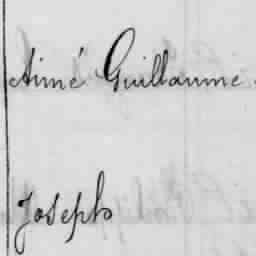 Aimé Guillaume
Joseph